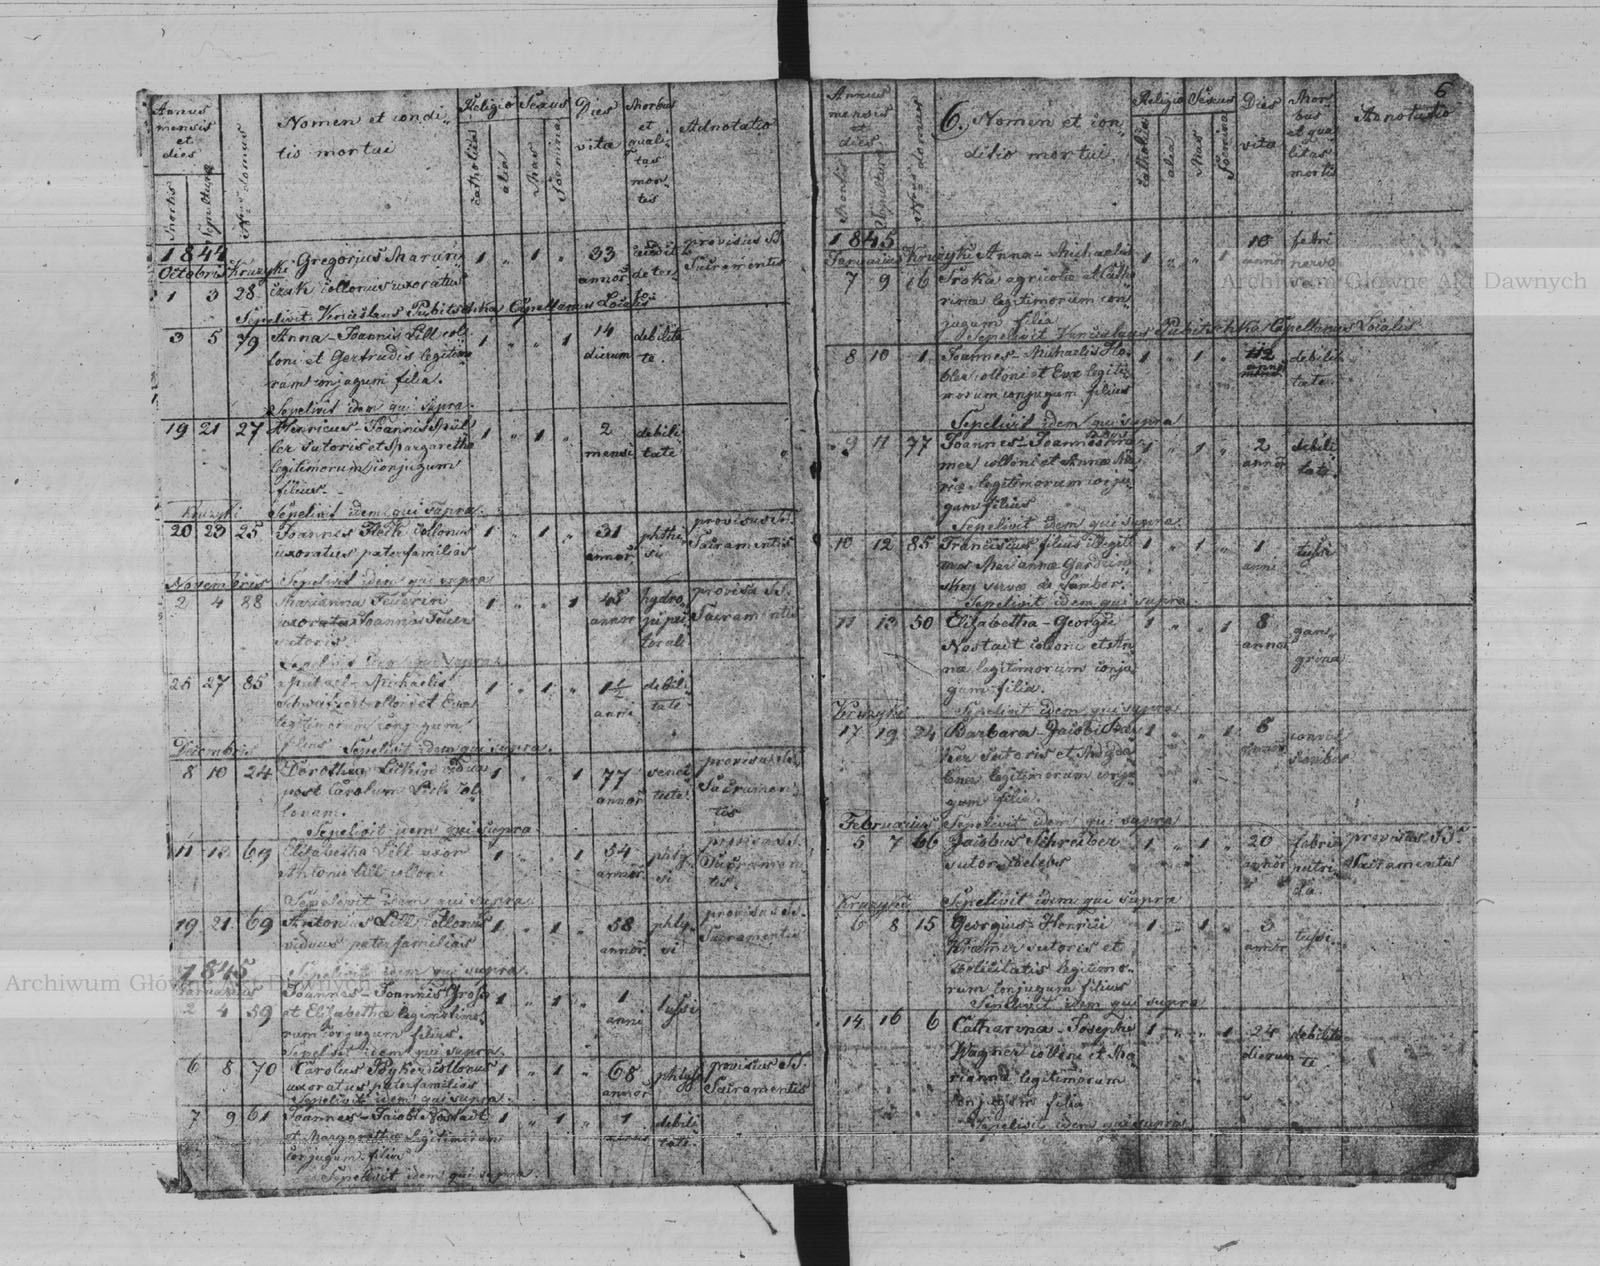 Annus mensis et dies
Mortis
Sepulturæ
Nrus domus
Nomen et condi-
tio mortui
Religio
catholica
alia
Sexus
Mas
Fœmina
Dies
vitæ
Morbus
et
quali-
tas
mor-
tis
Adnotatio
1844
Octobris Kruzyki Gregorius 1 „ 1 „ 33 provisus SS.
annor Sacramentis
1 3 28 collonus uxoratus
Sepelivit Venceslaus Pubitschka Capellanus Localis
3 5 79 Anna - Joannis Lill col-
loni et Gertrudis legitimo-
rum conjugum filia.
1 „ „ 1 14 dierum debilita-
te.
Sepelivit idem qui supra.
19 21 27 Henricus - Joannis Mül-
ler sutoris et Margaretha
legitimorum conjugum
filius.
1 „ 1 „ 2 mensi debili-
tate
Kruzyki Sepelivit idem qui supra.
20 23 25 Joannes collonus
uxoratus paterfamilias
1 „ 1 „ 31 annor phthi-
si provisus SS.
Sacramentis
Novembris Sepelivit idem qui supra
2 4 88 Marianna Feuerin
uxorata Joannis Feuer
sutoris.
1 „ „ 1 45 annor hydro-
pe pec-
torali provisa SS.
Sacramentis
Sepelivit idem qui supra
25 27 85 Michaelis
et Evæ
legitimorum conjugum
filius Sepelivit idem qui supra.
1 „ 1 „ 1½ anni debili-
tate
Decembris
8 10 24 Dorothea
post Carolum col-
lonum.
1 „ „ 1 77 annor senec-
tute provisa SS.
Sacramen-
tis
Sepelivit idem qui supra
11 13 69 Elisabetha Lill uxor
Antonii Lill colloni
1 „ „ 1 54 annor phty-
si provisa SS.
Sacramen-
tis.
Sepelivit idem qui supra.
19 21 69 Antonius Lill collonus
viduus paterfamilias
1 „ 1 „ 58 annor phty-
si provisus SS.
Sacramentis
1845 Sepelivit idem qui supra.
Januarius
2 4 59 Joannes - Joannis
et Elisabethæ legitimo-
rum conjugum filius.
1 „ 1 „ 1 anni tussi
Sepelivit idem qui supra.
6 8 70 Carolus collonus
uxoratus paterfamilias
1 „ 1 „ 68 annor phtysi provisus SS.
Sacramentis
Sepelivit idem qui supra.
7 9 61 Joannes - Jacobi Nostadt
et Margaretha legitimorum
conjugum filius
1 „ 1 „ 1 debili-
tate.
Sepelivit idem qui supra.
6
Annus
mensis
et
dies
Mortis
Sepulturæ
Nrus domus
6. Nomen et con-
ditio mortui.
Religio
catholica
alia
Sexus
Mas
Fœmina
Dies
vitæ
Mor-
bus
et qua-
litas
mortis
Adnotatio
1845
Januarius Kruzyki Anna - Michaelis
7 9 16 agricola et Catha-
rina legitimorum con-
jugum filia
1 „ „ 1 10 annor febri
nervo.
Sepelivit Venceslaus Pubitschka Capellanus Localis
8 10 1 Joannes - Michaelis
colloni et Evæ legiti-
morum conjugum filius
1 „ 1 „ debili-
tate.
Sepelivit idem qui supra
9 11 77 Joannes - Joannis
colloni et Annæ Ma-
riæ legitimorum conju-
gum filius
1 „ 1 „ 2 annor debili-
tate.
Sepelivit idem qui supra
10 12 85 Franciscus filius illegiti-
mus Mariannæ
de Sambor.
1 „ 1 „ 1 anni tussi
Sepelivit idem qui supra
11 13 50 Elisabetha - Georgii
Nostadt colloni et An-
næ legitimorum conju-
gum filia.
1 „ „ 1 8 annor gan-
grena
Kruzyki Sepelivit idem qui supra
17 19 24 Barbara - Jacobi
sutoris et Magda-
lenæ legitimorum conju-
gum filia.
1 „ „ 1 6
Februarius Sepelivit idem qui supra
5 7 66 Jacobus Schreiber
sutor cœlebs
1 „ 1 „ 20 annor febri
putri-
da. provisus SS.
Sacramentis
Kruzyki Sepelivit idem qui supra
6 8 15 Georgius - Henrici
Kramer sutoris et
Felicitatis legitimo-
rum conjugum filius
1 „ 1 „ 3 annor tussi.
Sepelivit idem qui supra
14 16 6 Catharina - Josephi
Wagner colloni et Ma-
rianna legitimorum
conjugum filia.
1 „ „ 1 24 dierum debilita-
te
Sepelivit idem qui supra
Archiwum Główne Akt Dawnych
Archiwum Główne Akt Dawnych